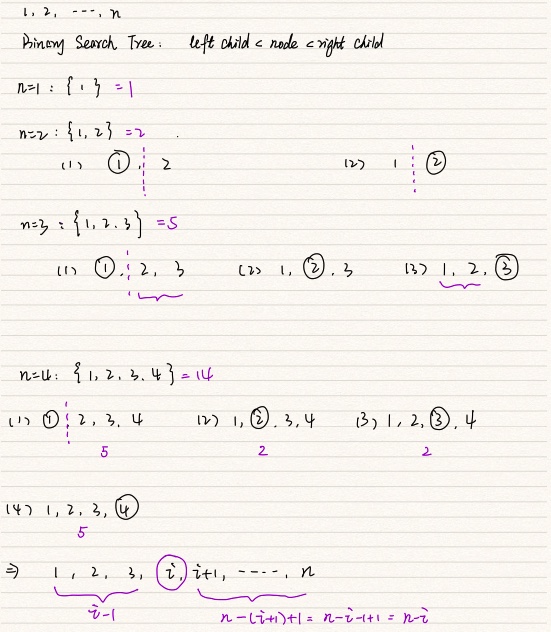 1, 2, ----, n
Binary Search Tree: left child < node < right child
n=1 : { 1 } = 1
n=2 : { 1, 2 } = 2
(1) ①, 2 (2) 1 ②
n=3 : { 1, 2, 3 } = 5
(1) ①, 2, 3 (2) 1, ②, 3 (3) 1, 2, ③
n=4: { 1, 2, 3, 4 } = 14
(1) ① 2, 3, 4 (2) 1, ②, 3, 4 (3) 1, 2, ③, 4
5 2 2
(4) 1, 2, 3, ④
5
⇒ 1, 2, 3, i, i+1, ----, n
i-1 n-(i+1)+1 = n-i-1+1 = n-i